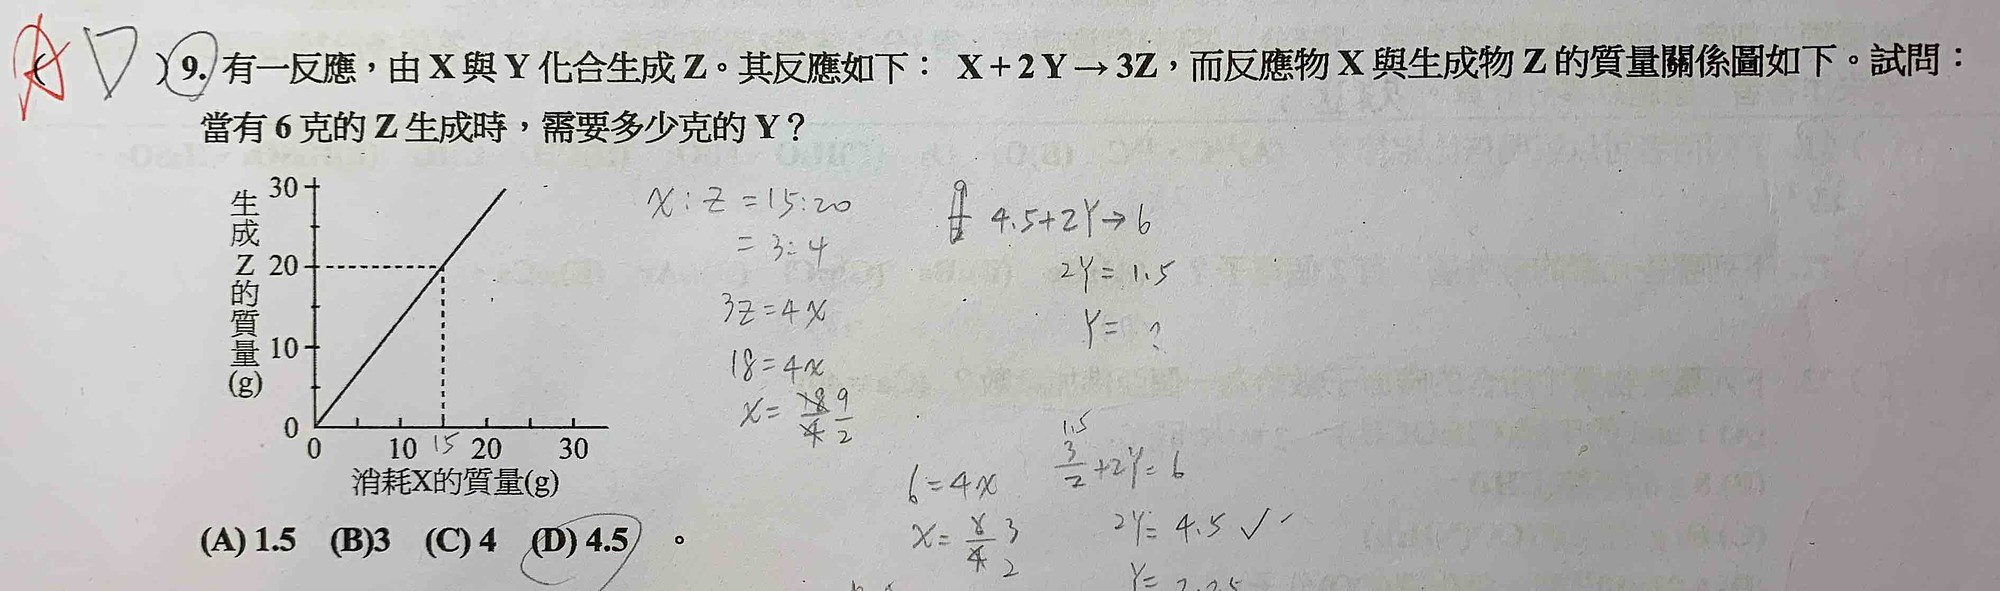 A D )9. 有一反應，由 X 與 Y 化合生成 Z。其反應如下： X + 2 Y → 3Z，而反應物 X 與生成物 Z 的質量關係圖如下。試問：
當有 6 克的 Z 生成時，需要多少克的 Y？
生成Z的質量(g)
30
20
10
0
0 10 15 20 30
消耗X的質量(g)
x : z = 15:20
= 3:4
3z = 4x
18 = 4x
x = 18/4 9/2
4.5+2Y→6
2Y = 1.5
Y = ?
6 = 4x
x = 6/4 3/2
1.5
3/2 +2Y = 6
2Y = 4.5 ✓
Y = 2.25
(A) 1.5 (B)3 (C) 4 (D) 4.5 。